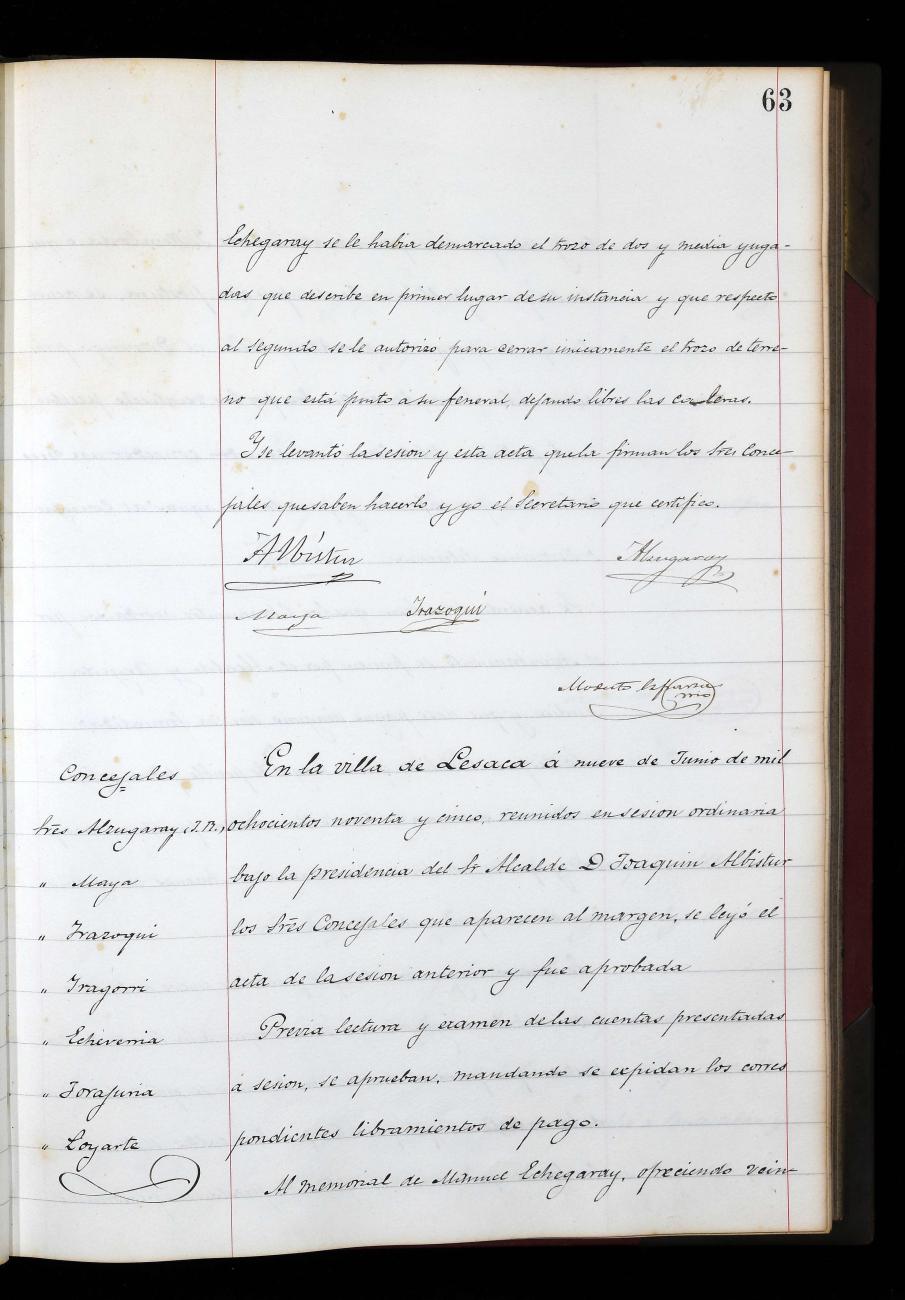 63
Echegaray se le habia demarcado el trozo de dos y media yuga-
das que describe en primer lugar de su instancia y que respecto
al segundo se le autorizó para cerrar unicamente el trozo de terre-
no que está junto a su feneral, dejando libres las caleras.
Y se levantó la sesion y esta acta que la firman los Sres Conce-
jales que saben hacerlo y yo el Secretario que certifico.
Albistur Alzugaray
Maya Irazoqui
Modesto Esparza
srio
Concejales
Sres Alzugaray (J.B.)
" Maya
" Irazoqui
" Iragorri
" Echeverria
" Torajuria
" Loyarte
En la villa de Lesaca á nueve de Junio de mil
ochocientos noventa y cinco, reunidos en sesion ordinaria
bajo la presidencia del Sr Alcalde D Joaquin Albistur
los Sres Concejales que aparecen al margen, se leyó el
acta de la sesion anterior y fue aprobada
Previa lectura y examen de las cuentas presentadas
á sesion, se aprueban, mandando se expidan los corres
pondientes libramientos de pago.
Al memorial de Manuel Echegaray, ofreciendo vein-